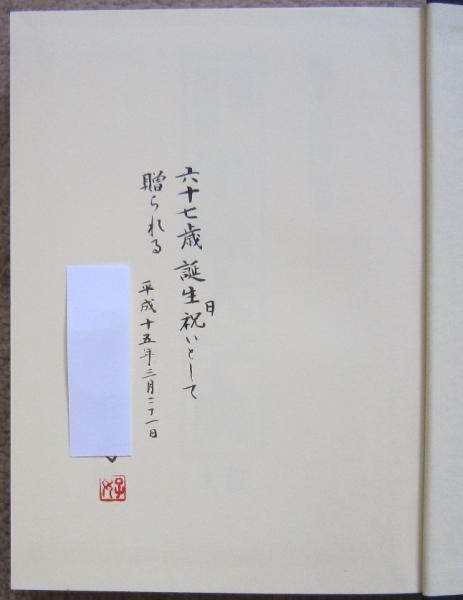 六十七歳誕生日祝いとして
贈られる
平成十五年三月二十一日